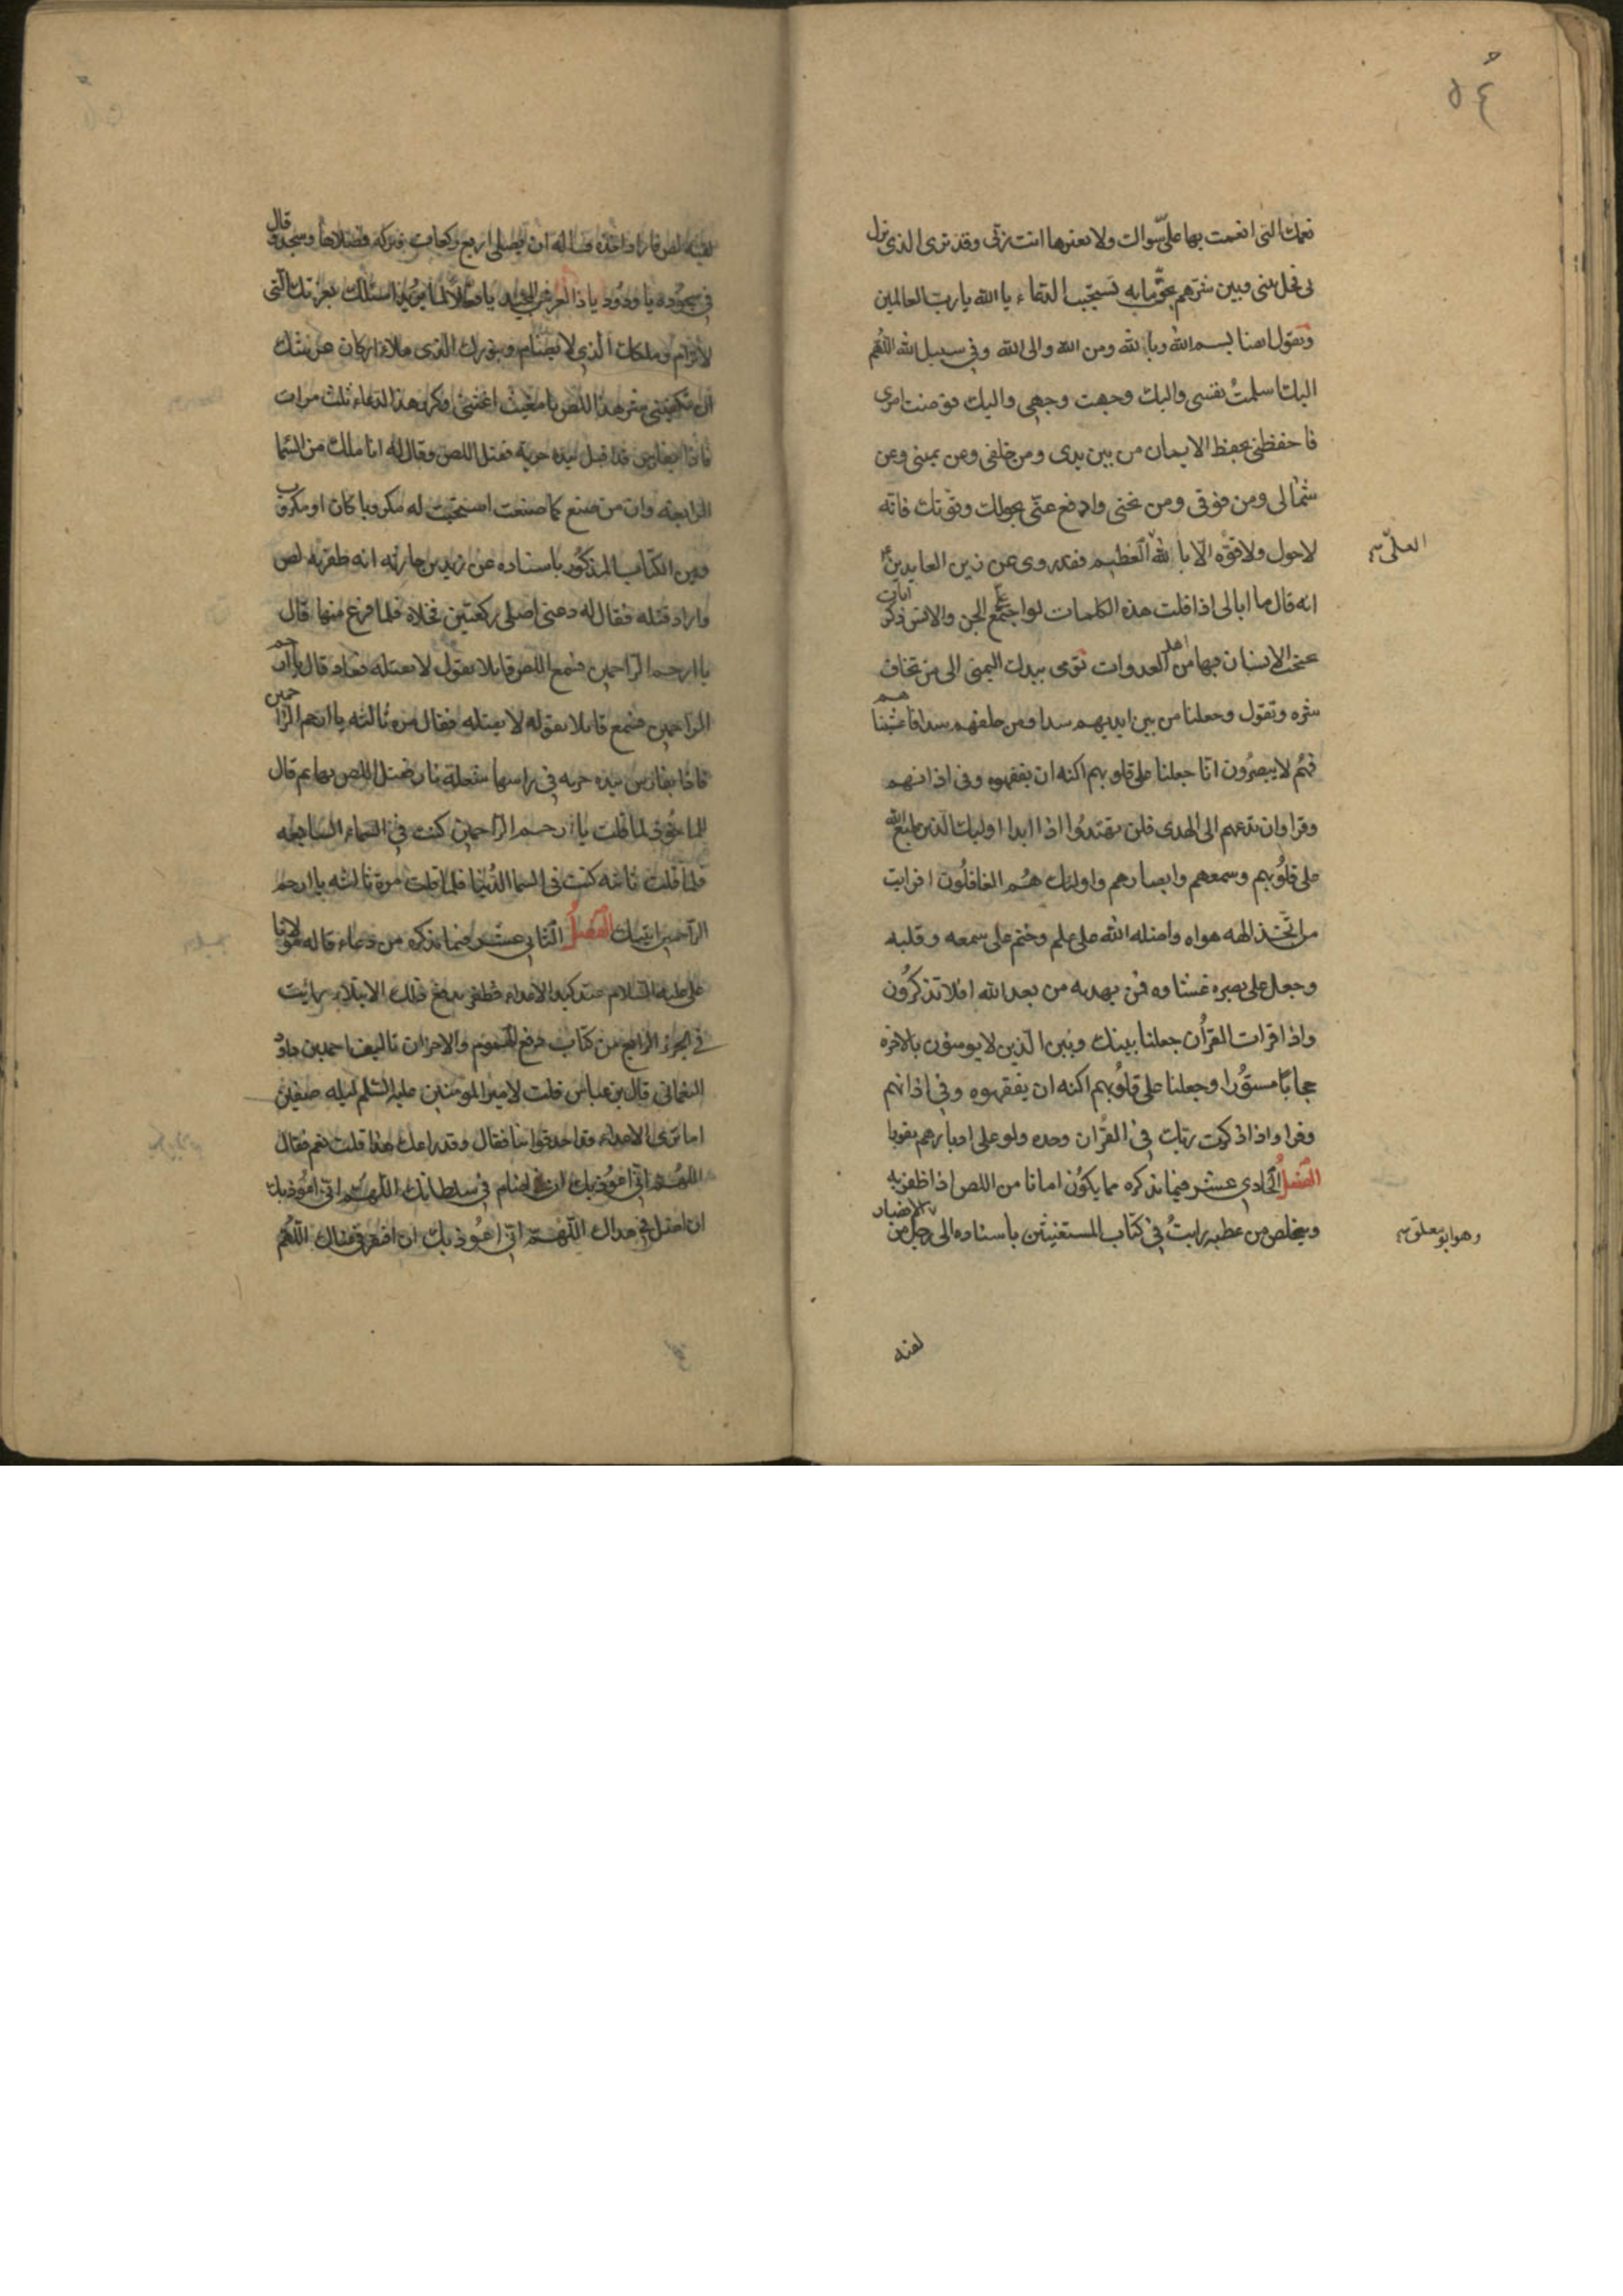 ٥٤
نعمك التى انعمت بها على سوالك ولا تغيرها انت ربى وقد ترى الذى نزل
بى فحل بينى وبين شرهم بحق ما به تستجيب الدعاء يا الله يا رب العالمين
وتقول ايضا بسم الله وبالله ومن الله والى الله وفى سبيل الله اللهم
اليك اسلمت نفسى واليك وجهت وجهى واليك فوضت امرى
فاحفظنى بحفظ الايمان من بين يدى ومن خلفى وعن يمينى وعن
شمالى ومن فوقى ومن تحتى وادفع عنى بحولك وقوتك فانه
لا حول ولا قوة الا بالله العظيم فقد روى عن زين العابدين ع
العلى
انه قال ما ابالى اذا قلت هذه الكلمات لو اجتمع على الجن والانس ذكر ايات
يحتجب الانسان بها من اهل العدوات تومى بيدك اليمنى الى من تخاف
شره وتقول وجعلنا من بين ايديهم سدا ومن خلفهم سدا فاغشيناهم
فهم لا يبصرون انا جعلنا على قلوبهم اكنه ان يفقهوه وفى اذانهم
وقرا وان تدعهم الى الهدى فلن يهتدوا اذا ابدا اوليك الذين طبع الله
على قلوبهم وسمعهم وابصارهم واولئك هم الغافلون افرايت
من اتخذ الهه هواه واضله الله على علم وختم على سمعه وقلبه
وجعل على بصره غشاوه فمن يهديه من بعد الله افلا تذكرون
واذا قرات القرأن جعلنا بينك وبين الذين لا يومنون بالاخره
حجابا مستورا وجعلنا على قلوبهم اكنه ان يفقهوه وفى اذانهم
وقرا واذا ذكرت ربك فى القرأن وحده ولو على ادبارهم نفورا
الفصل الحادى عشر فيما نذكره مما يكون امانا من اللص اذا ظفر به
ويتخلص من عطبه رايت فى كتاب المستغيثين باسناده الى رجل من الانصار
وهو ابو معلق
لقيه
لقيه لص فاراد اخذه فساله ان يصلى اربع ركعات فتركه فصلاها وسجد وقال
فى سجوده يا ودود يا ذا العرش المجيد يا فعالا لما يريد اسئلك بعزتك التى
لا ترام وملكك الذى لا يضام وبنورك الذى ملاء اركان عرشك
ان تكفينى شر هذا اللص يا مغيث اغثنى وكرر هذا الدعاء ثلث مرات
فاذا بفارس قد اقبل بيده حربة فقتل اللص وقال له انا ملك من السما
الرابعة وان من صنع كما صنعت استجيب له مكروبا كان او مكروب
ومن الكتاب المذكور باسناده عن زيد بن حارثه انه ظفر به لص
واراد قتله فقال له دعنى اصلى ركعتين فخلاه فلما فرغ منها قال
يا ارحم الراحمين فسمع اللص قايلا يقول لا تقتله فعاد قال يا ارحم
الراحمين فسمع قايلا يقوله لا يقتله فقال مره ثالثه يا ارحم الراحمين
فاذا بفارس بيده حربه فى راسها شعلة نار فقتل اللص بها ثم قال
لما قلت يا ارحم الراحمين كنت فى السماء السابعه
فلما قلت ثانيه كنت فى السما الدنيا فلما قلت مرة ثالثه يا ارحم
الراحمين اتيتك الفصل الثانى عشر فيما نذكره من دعاء قاله مولانا
على عليه السلام عند كيد الاعداء وظفر بدفع ذلك الابتلاء رايت
فى الجزء الرابع من كتاب دفع الهموم والاحزان تاليف احمد بن داود
النعمانى قال بن عباس قلت لامير المومنين عليه السلم ليله صفين
اما ترى الاعداء قد احدقوا بنا فقال وقد راعك هذا قلت نعم فقال
اللهم انى اعوذ بك ان اضام فى سلطانك اللهم انى اعوذ بك
ان اضل فى هداك اللهم انى اعوذ بك ان افتقر فى غناك اللهم